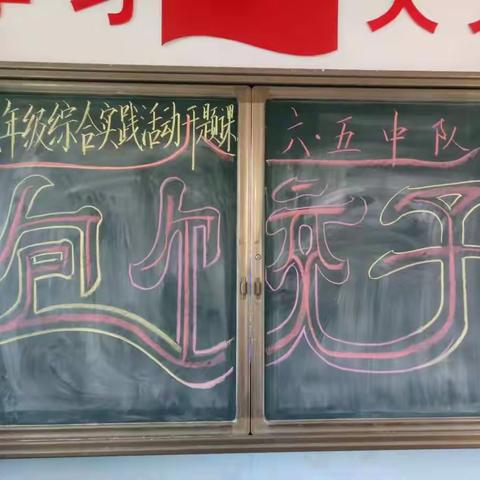 习
年级综合实践活动开题课
六·五中队
包饺子